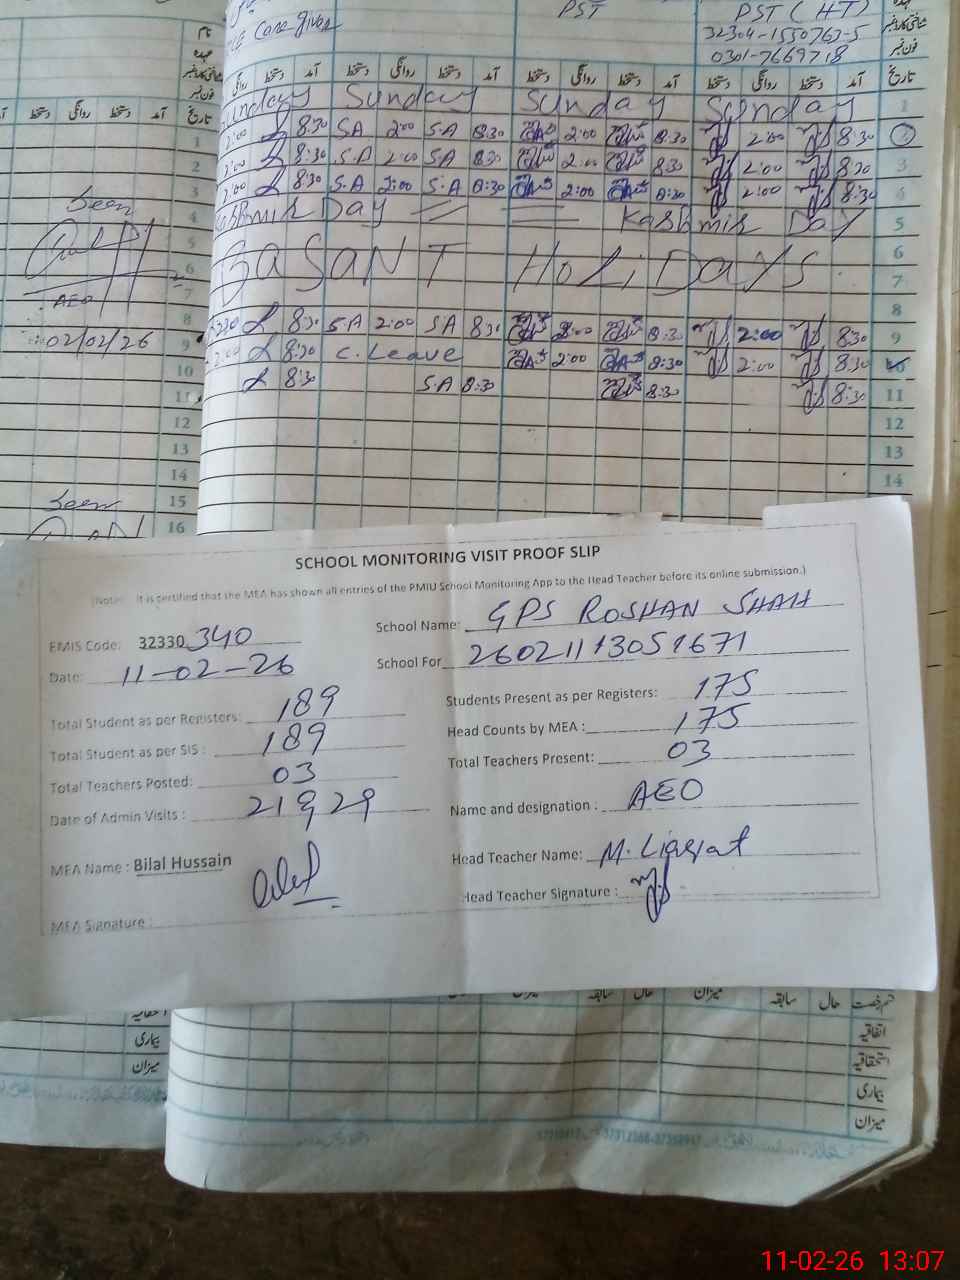 PST
PST (HT)
Care giver
32304-1550763-5
0301-7669718
نام
عہدہ
شناختی کارڈ نمبر
فون نمبر
تاریخ آمد دستخط روانگی دستخط آمد دستخط روانگی دستخط آمد دستخط روانگی دستخط آمد دستخط روانگی
Sunday Sunday Sunday Sunday 1
2:00 8:30 S.A 2:00 S.A 8:30 2:00 8:30 2:00 8:30 2
2:00 8:30 S.A 2:00 S.A 8:30 2:00 8:30 2:00 8:30 3
2:00 8:30 S.A 2:00 S.A 8:30 2:00 8:30 2:00 8:30 4
Kashmir Day Kashmir Day 5
6
BASANT HOLiDAYS 7
8
8:30 S.A 2:00 S.A 8:30 2:00 8:30 2:00 8:30 9
2:00 8:30 C. Leave 2:00 8:30 2:00 8:30 10
8:30 S.A 8:30 8:30 8:30 11
12
13
14
تاریخ آمد دستخط روانگی دستخط آمد
1
2
3
4
5
6
7
8
9
10
11
12
13
14
15
16
Seen
AEO
02/02/26
Seen
SCHOOL MONITORING VISIT PROOF SLIP
(Note: It is certified that the MEA has shown all entries of the PMIU School Monitoring App to the Head Teacher before its online submission.)
EMIS Code: 32330 340
School Name: GPS ROSHAN SHAH
Date: 11-02-26
School For 26021113051671
Total Student as per Registers: 189
Students Present as per Registers: 175
Total Student as per SIS : 189
Head Counts by MEA : 175
Total Teachers Posted: 03
Total Teachers Present: 03
Date of Admin Visits : 21 9, 29
Name and designation : AEO
MEA Name : Bilal Hussain
Head Teacher Name: M. Liaqat
MEA Signature :
Head Teacher Signature :
قسم رخصت حال سابقہ میزان حال سابقہ میزان
اتفاقیہ
استحقاقیہ
بیماری
میزان
استحقاقیہ
بیماری
میزان
11-02-26 13:07